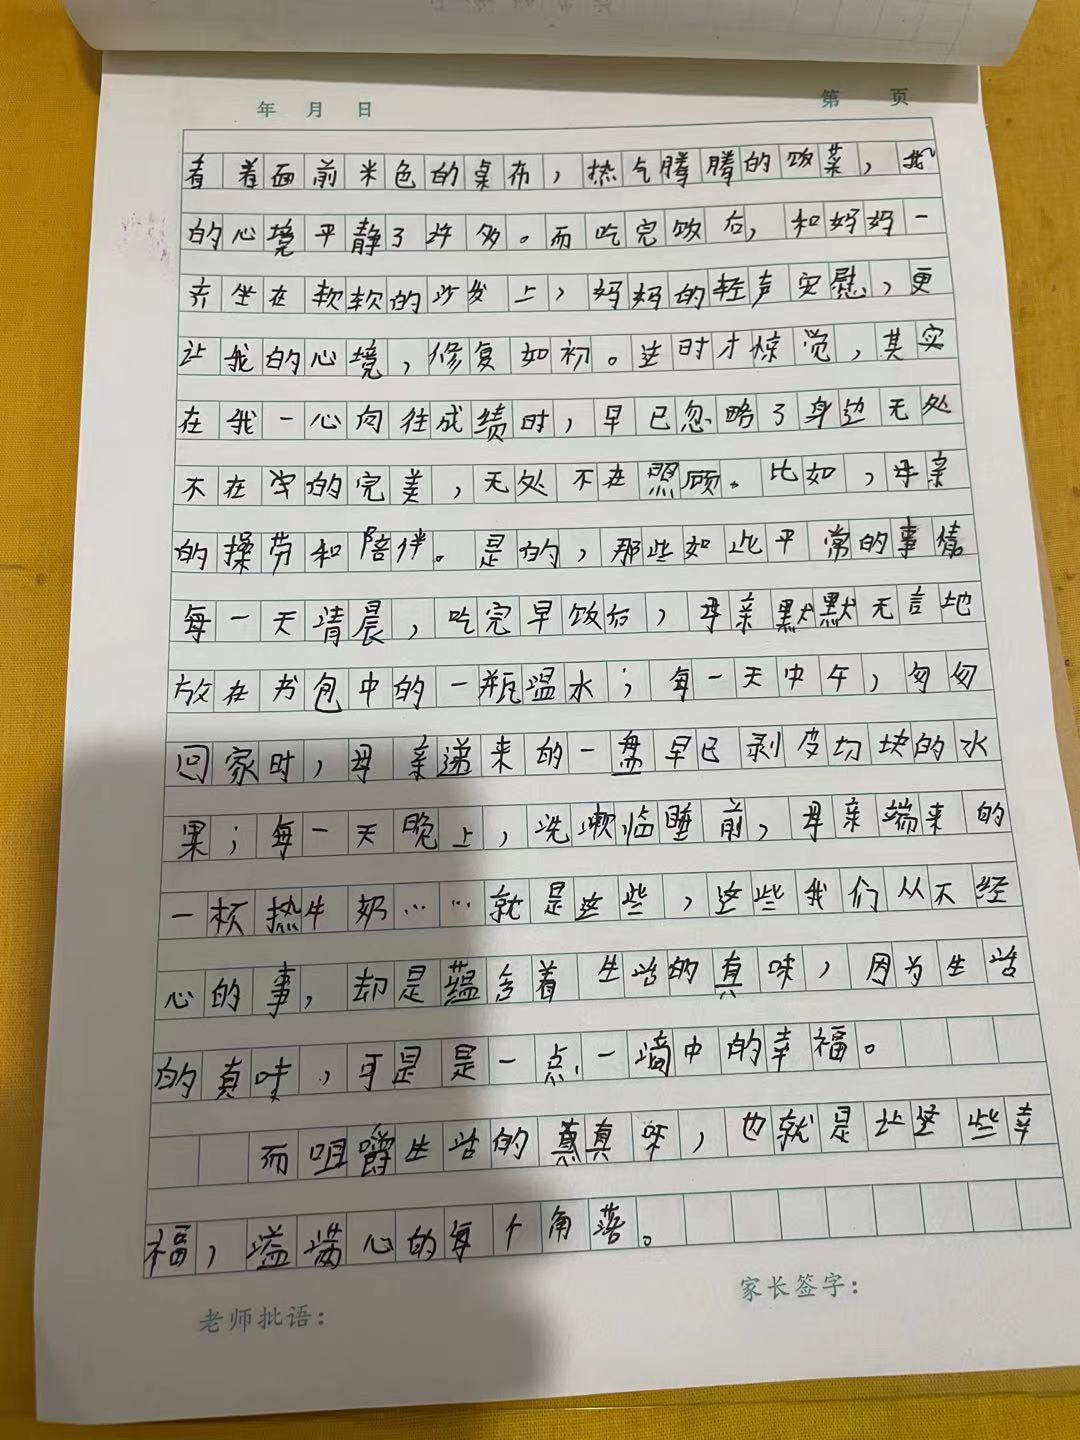 年 月 日 第 页
看着面前米色的桌布，热气腾腾的饭菜，我
的心境平静了许多。而吃完饭后，和妈妈一
齐坐在软软的沙发上，妈妈的轻声安慰，更
让我的心境，修复如初。这时才惊觉，其实
在我一心向往成绩时，早已忽略了身边无处
不在的完美，无处不在照顾。比如，母亲
的操劳和陪伴。是的，那些如此平常的事情
每一天清晨，吃完早饭后，母亲默默无言地
放在书包中的一瓶温水；每一天中午，匆匆
回家时，母亲递来的一盘早已剥皮切块的水
果；每一天晚上，洗漱临睡前，母亲端来的
一杯热牛奶……就是这些，这些我们从不经
心的事，却是蕴含着生活的真味，因为生活
的真味，可是是一点一滴中的幸福。
而咀嚼生活的真味，也就是让这些幸
福，溢满心的每个角落。
老师批语：
家长签字：